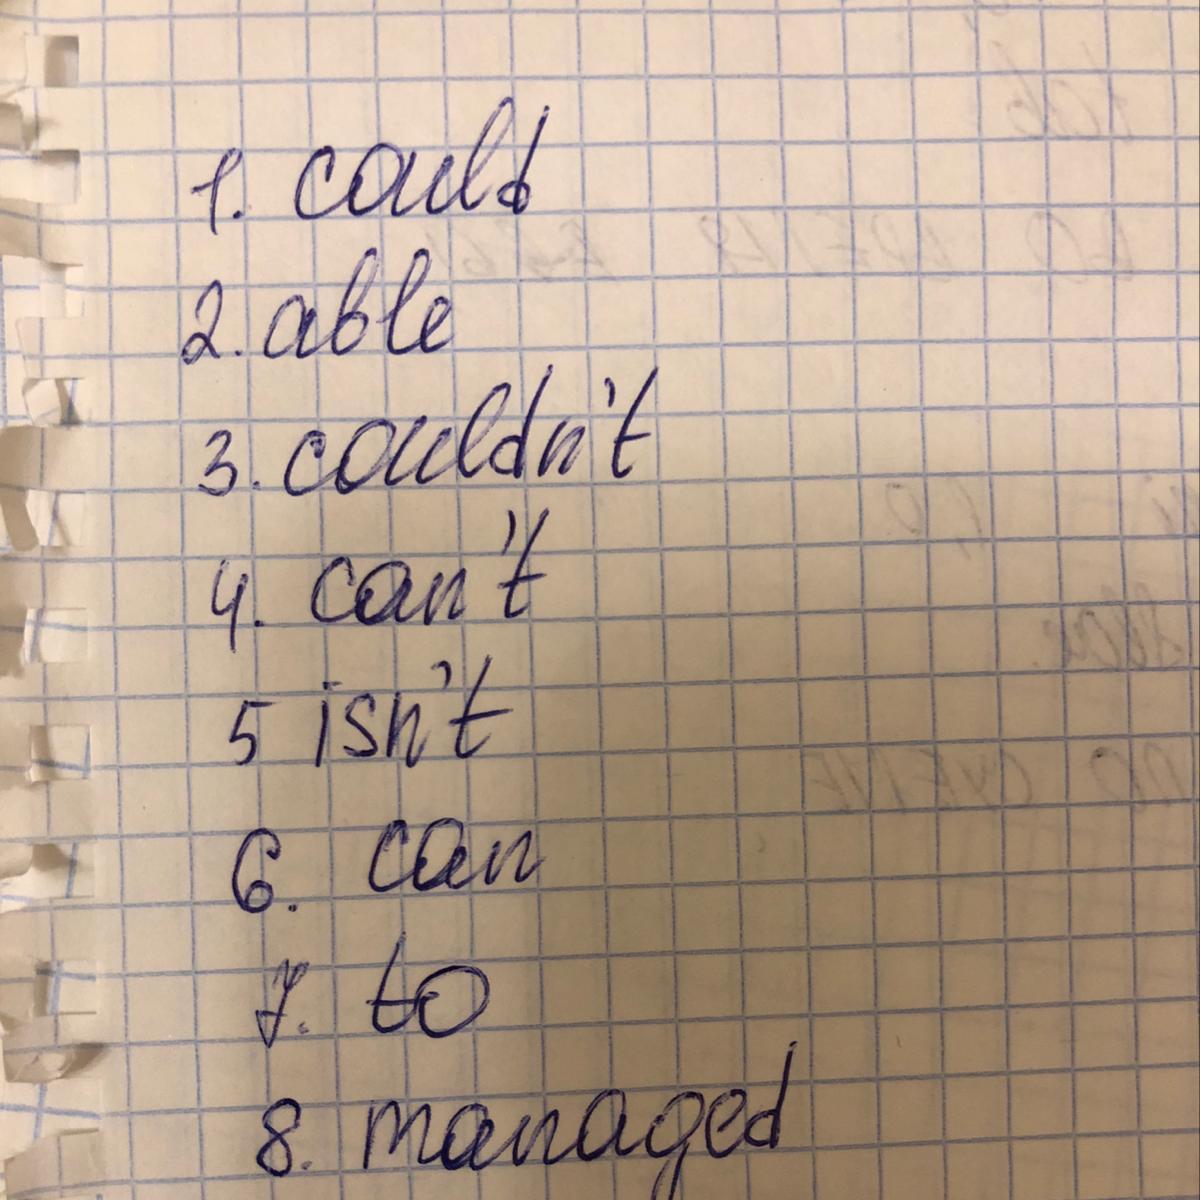 1. could
2. able
3. couldn't
4. can't
5 isn't
6. can
7. to
8. managed